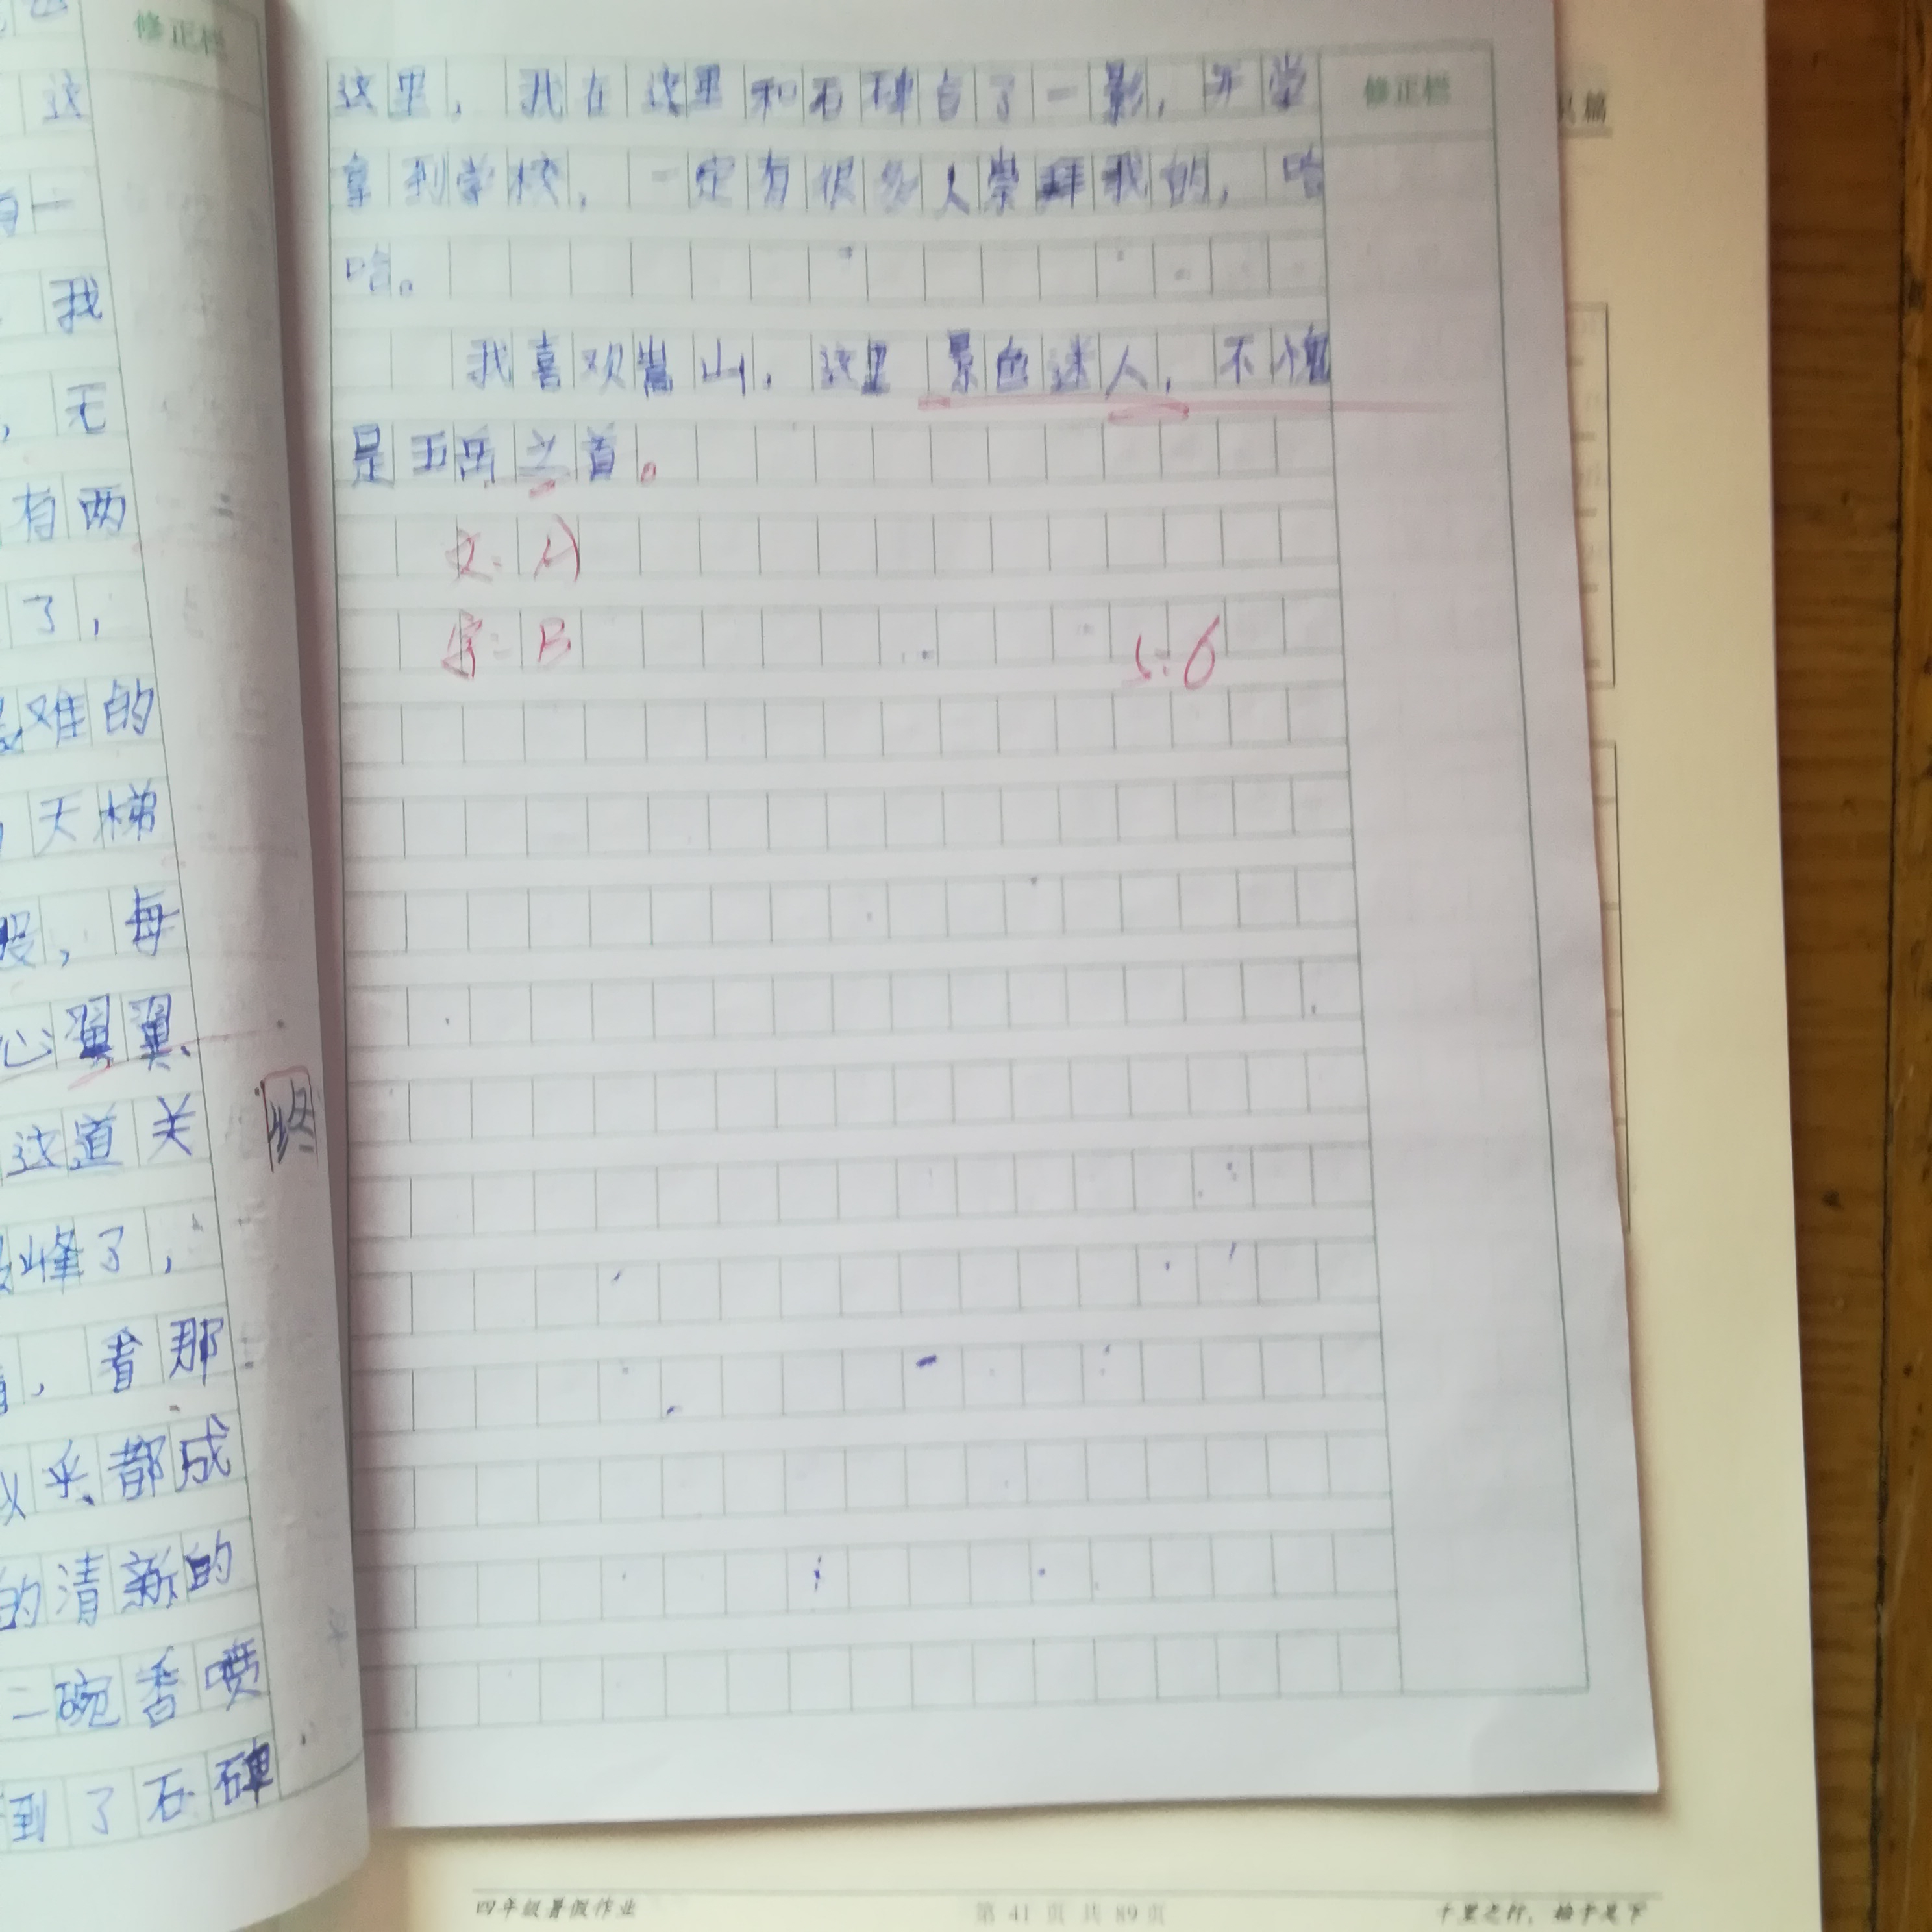 修正栏
这
一
我
，无
有两
了，
难的
天梯
，每
心翼翼
这道关
终
峰了，
，看那
乎都成
的清新的
二碗香喷
到了石碑
这里，我在这里和石碑合了一影，开学
修正栏
拿到学校，一定有很多人崇拜我的，哈
哈。
我喜欢嵩山，这里景色迷人，不愧
是五岳之首。
文：A
字：B
5.6
稿
四年级暑假作业
第 41 页 共 89 页
千里之行，始于足下